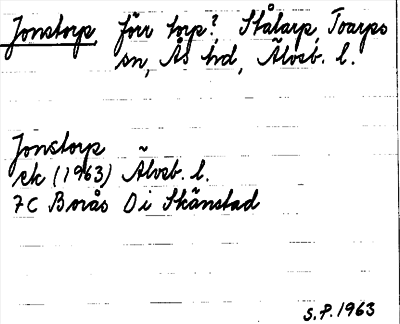 Jonstorp, förr torp?, Stålarp, Toarps
sn, Ås hd, Älvsb. l.
Jonstorp
ek (1963) Älvsb. l.
7C Borås Ö i Skänstad
S.P. 1963